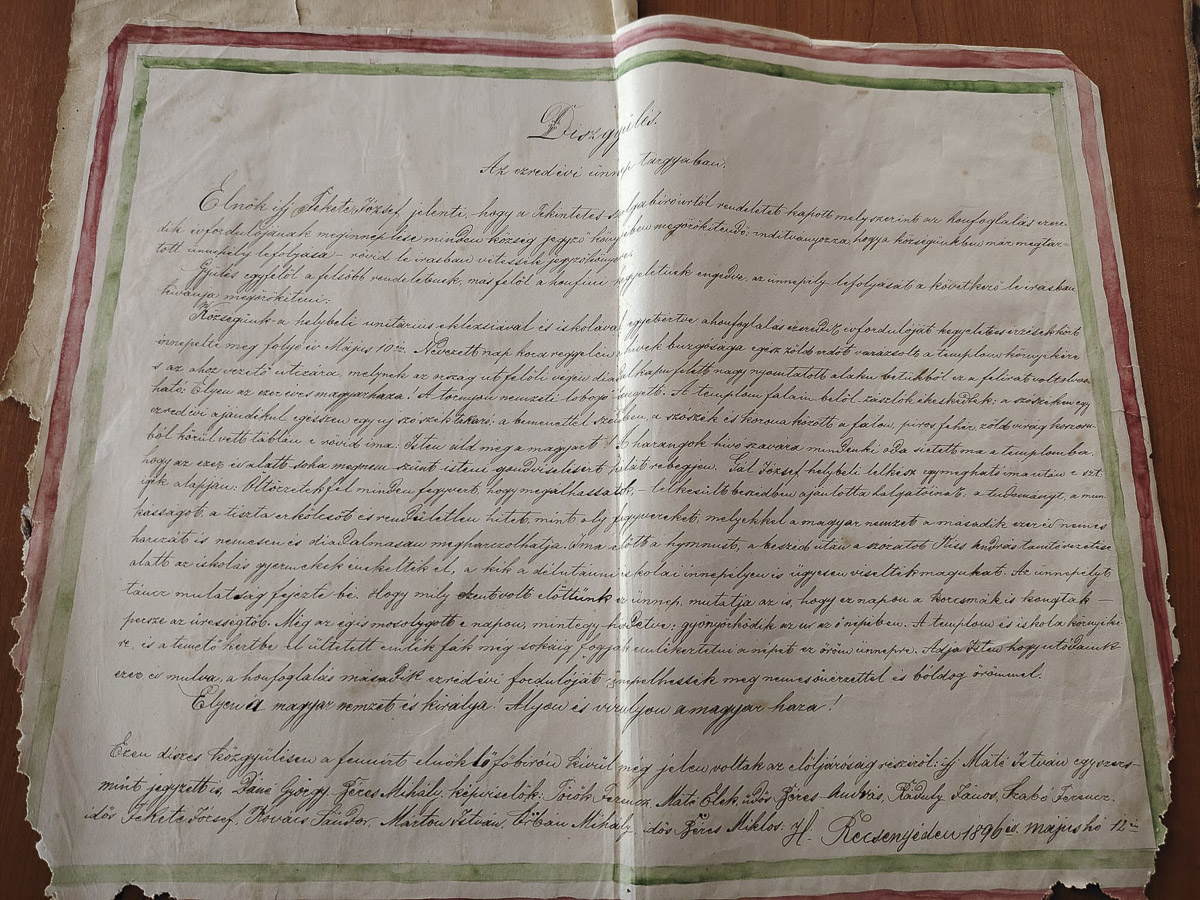 Diszgyülés.
Az ezredévi ünnep targyaban.
Elnök ifj Fekete József jelenti, hogy a Tekintetes szolgabiróurtól rendeletet kapott mely szerint az honfoglalás ezere-
dik évfordulójának meginneplése minden község jegyző könyvében megörökitendő, inditványozza, hogy a községünkben már megtar-
tott ünnepély lefolyasa - rövid leirasban vétessék jegyzőkönyvre.
Gyülés egyfelől a felsőbb rendeletnek, masfelől a honfiui kegyeletnek engedve, az ünnepély lefolyását a következő leirasban
kivanja megörökiteni:
Községünk a helybeli unitárius eklézsiával és iskolával egyetértve a honfoglalás ezeredik évfordulóját kegyeletes érzések közt
ünnepelte meg folyó év Május 10én. Nevezett nap kora reggelén a hivek buzgósága egész zöld erdőt varázsolt a templom környékére
s az ahoz vezető utczára, melynek az ország ut felöli végén diadalkapu felett nagy nyomtatott alaku betükből ez a felirat volt olvas-
ható: Éljen az ezer éves magyar haza! A tornyon nemzeti lobogó lengett. A templom falain belől zászlók ékeskedtek; a szószéken egy
ezredévi ajándékul egészen egy uj szószék takaró, a bemenettel szemben, a szószék és korona között a falon, piros, fehér, zöld virág koszoru-
ból körülvett táblán e rövid ima: Isten áld meg a magyart! A harangok hivó szavara mindenki oda sietett ma a templomba,
hogy az ezer év alatt soha meg nem szünt isteni gondviselésért hálát rebegjen. Gál József helybeli lelkész egy megható ima után e szt
igék alapján: Öltözzétek fel minden fegyvert, hogy megálhassatok, - lelkesült beszédben ajánlotta halgatóinak, a tudományt, a mun-
kasságot, a tiszta erkölcsöt és rendületlen hitet, mint oly fegyvereket, melyekkel a magyar nemzet a második ezer év nemes
harczát is nemesen és diadalmasan megharczolhatja. Ima előtt a hymnust, a beszéd után a szózatot Kiss András tanitó vezetése
alatt az iskolás gyermekek énekelték el, a kik a délutáni iskolai ünnepélyen is ügyesen viselték magukat. Az ünnepélyt
táncz mulatság fejezte be. Hogy mily szent volt előttünk ez ünnep, mutatja az is, hogy ez napon a korcsmák is kongtak -
persze az ürességtől. Még az ég is mosolygott e napon, mintegy hirdetve: gyönyörködik az ur az ő népében. A templom és iskola környéké-
re, és a temető kertbe el ültetett emlék fák még sokáig fogják emlékeztetni a népet ez öröm ünnepre. Adja Isten hogy utódaink
ezer év mulva, a honfoglalás második ezredévi fordulóját ünnepelhessék meg nemes önérzettel és boldog örömmel.
Éljen a magyar nemzet és királya! Áljon és viruljon a magyar haza!
Ezen diszes közgyülésen a fennirt elnöklő főbirón kivül meg jelen voltak az előljáróság részről: ifj Máté István egyszers-
mint jegyzett is, Páné György, Béres Mihály, képviselők: Török Ferencz, Máté Elek, idős Béres András, Ráduly János, Szabó Ferencz,
idős Fekete József, Kovács Sándor, Márton István, Orbán Mihály, idős Béres Miklós. H. Recsenyéden 1896 és. május hó 12én